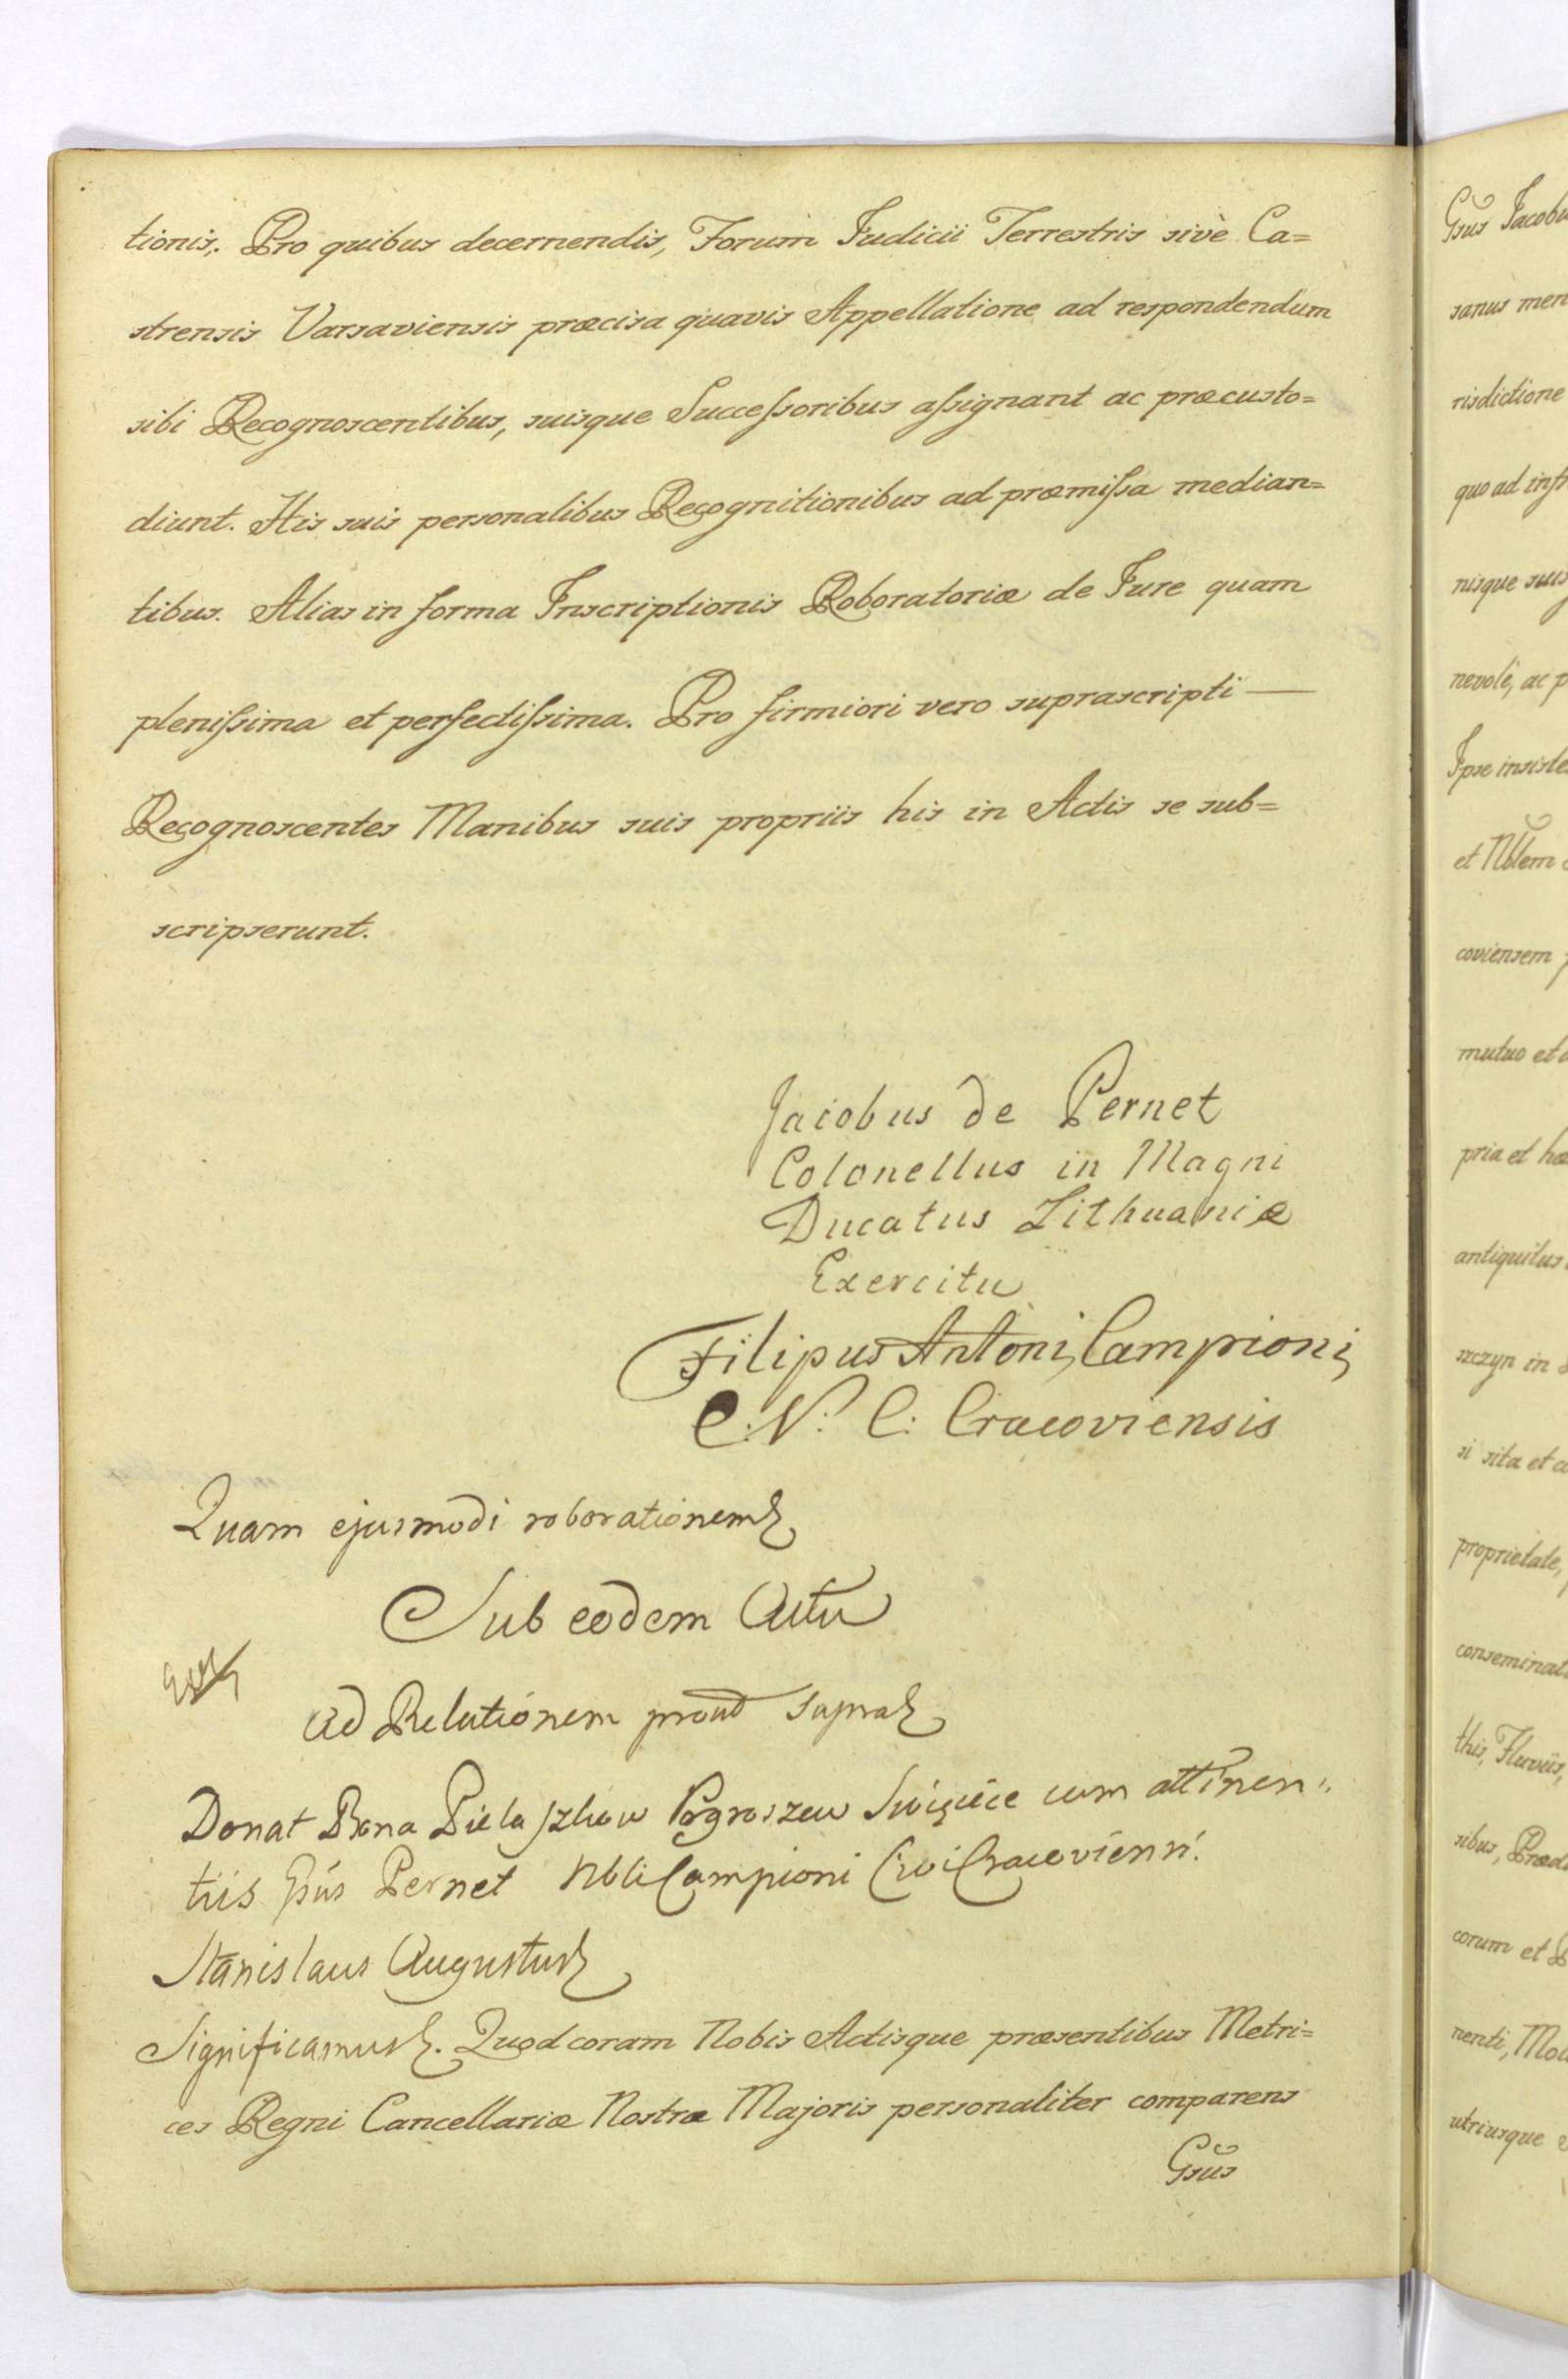 tionis. Pro quibus decernendis, Forum Judicii Terrestris sivè Ca=
strensis Varsaviensis præcisa quavis Appellatione ad respondendum
sibi Recognoscentibus, suisque Succeſsoribus aſsignant ac præcusto=
diunt. His suis personalibus Recognitionibus ad præmiſsa median=
tibus. Alias in forma Inscriptionis Roboratoriæ de Jure quam
pleniſsima et perfectiſsima. Pro firmiori vero suprascripti —
Recognoscentes Manibus suis propriis his in Actis se sub=
scripserunt.
Jacobus de Pernet
Colonellus in Magni
Ducatus Lithuaniæ
Exercitu
Filipus Antoni Campioni
C: N: C: Cracoviensis
Quam ejusmodi roborationem
Sub eodem Actu
Ad Relationem prout supra
Donat Bona Pogroszew Swięcice cum attinen:
tiis Gsus Pernet Nbli Campioni Civi Cracoviensi.
Stanislaus Augustus
Significamus. Quod coram Nobis Actisque præsentibus Metri=
ces Regni Cancellariæ Nostræ Majoris personaliter comparens
Gsus
Gsus Jacobu
sanus men
risdictione
quo ad infr
nisque suis
nevolè, ac p
Ipse insiste
et Nblem
coviensem
mutuo et
pria et hæ
antiquitus
szczyn in
si sita et
proprietate,
conseminat
this, Fluviis,
sibus, Præd
corum et
nenti, Mol
utriusque